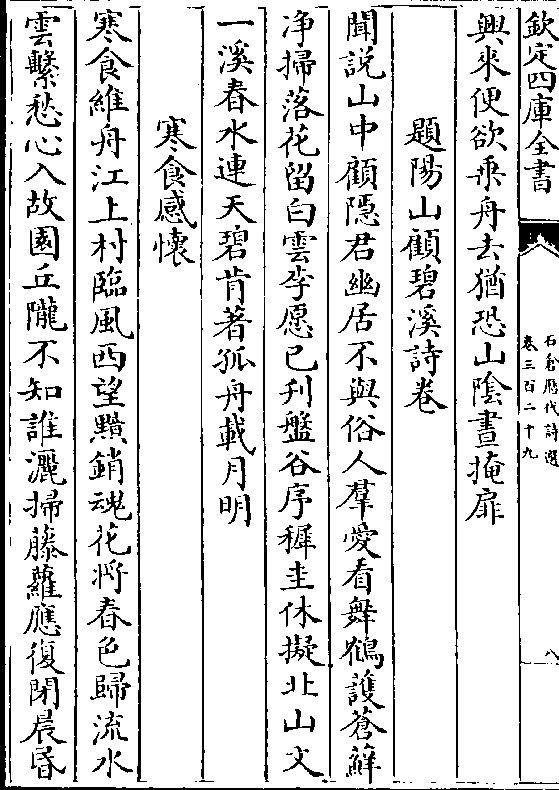 欽定四庫全書
石倉歷代詩選
卷三百二十九
八
興來便欲乗舟去猶恐山陰晝掩扉
題陽山顧碧溪詩卷
聞説山中顧隠君幽居不與俗人羣愛看舞鶴護蒼蘚
净掃落花留白雲李愿已刋盤谷序穉圭休擬北山文
一溪春水連天碧肯著孤舟載月明
寒食感懷
寒食維舟江上村臨風西望黯銷魂花将春色歸流水
雲繫愁心入故園丘隴不知誰灑掃藤蘿應復閉晨昏